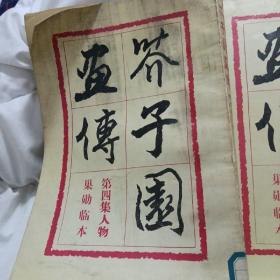 芥子園
畫傳
第四集人物
巢勋临本
畫傳
巢勋临本